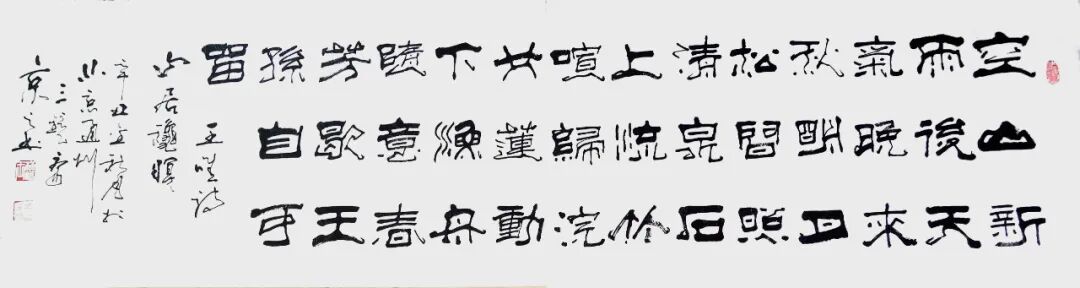 空山新
雨後天
氣晚來
秋明月
松間照
清泉石
上流竹
喧歸浣
女蓮動
下漁舟
隨意春
芳歇王
孫自可
留
王維诗
山居龝暝
辛丑年秋月於
北京通州